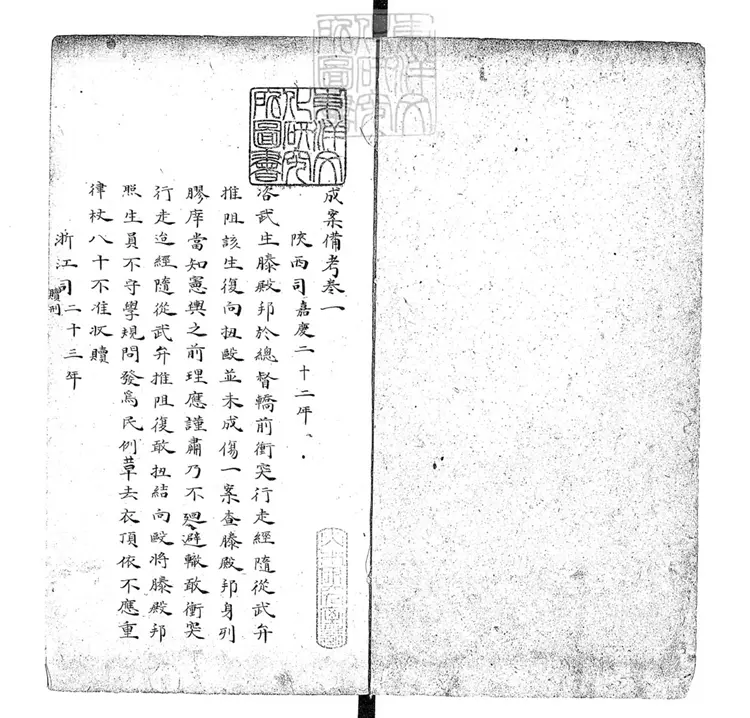 東洋文化研究所圖書
成案備考卷一
陝西司嘉慶二十二年
咨武生滕殿邦於總督轎前衝突行走經隨從武弁
推阻該生復向扭毆並未成傷一案查滕殿邦身列
膠庠當知憲輿之前理應謹肅乃不廻避輙敢衝突
行走迨經隨從武弁推阻復敢扭結向毆將滕殿邦
照生員不守學規問發爲民例革去衣頂依不應重
律杖八十不准收贖
浙江司二十三年
贖刑